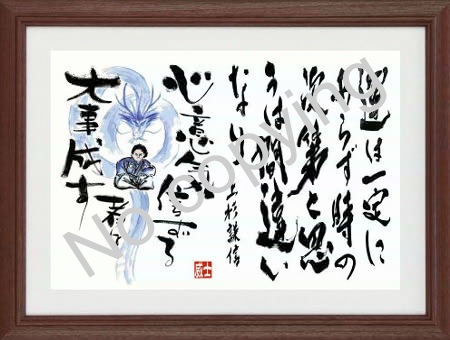 運は一定に
あらず時の
次第と思
うは間違い
なり
上杉謙信
心意気信ずる
者
大事成す
威士
No copying